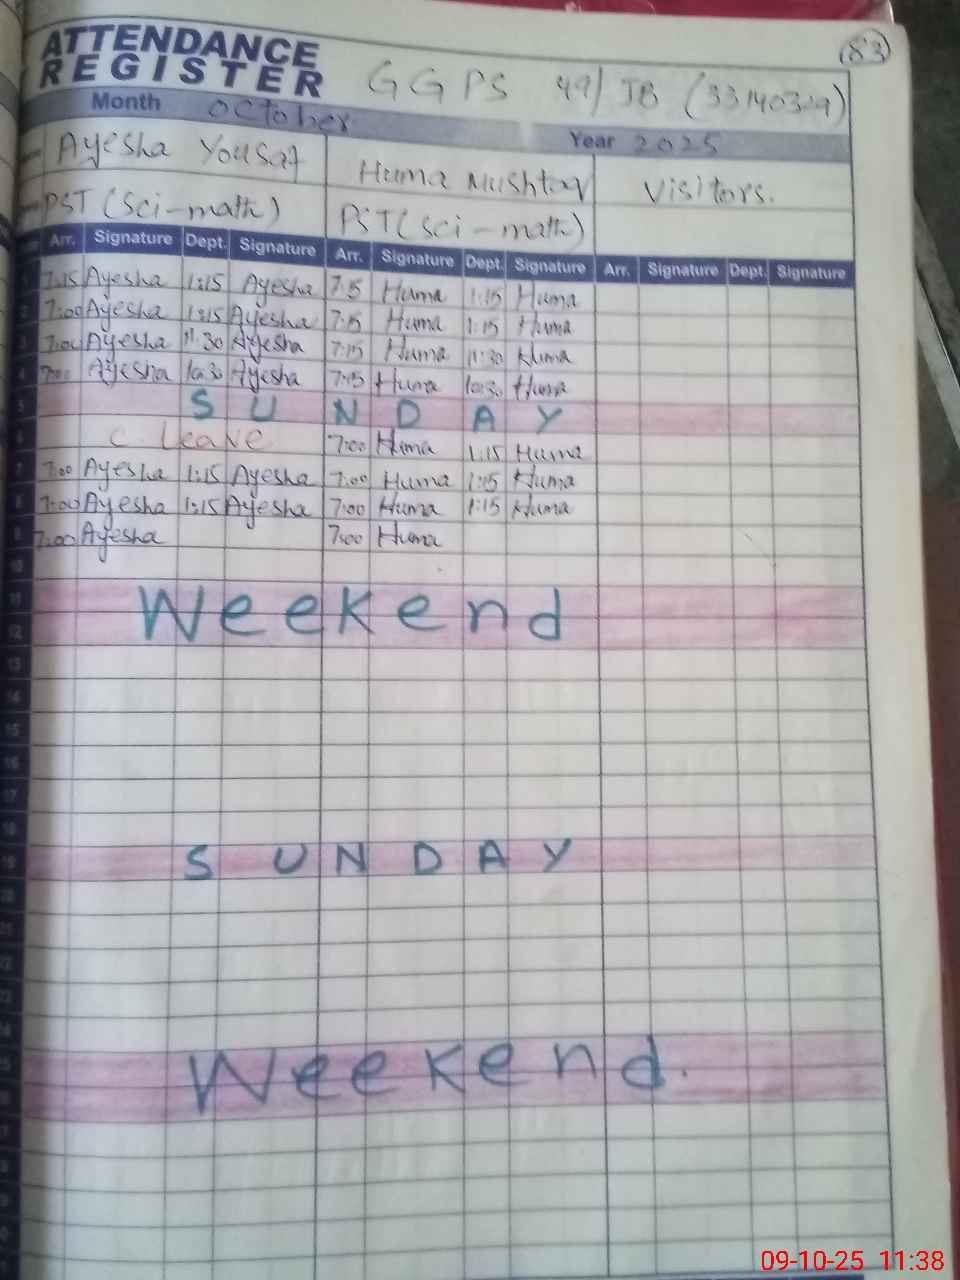 83
ATTENDANCE
REGISTER
GGPS 49/JB (33140309)
Month October
Year 2025
Ayesha Yousaf Huma Mushtaq Visitors.
PST (Sci-math) PST (Sci-math)
Arr. Signature Dept. Signature Arr. Signature Dept. Signature Arr. Signature Dept. Signature
1 7:15 Ayesha 1:15 Ayesha 7:15 Huma 1:15 Huma
2 7:00 Ayesha 1:15 Ayesha 7:15 Huma 1:15 Huma
3 7:00 Ayesha 11:30 Ayesha 7:15 Huma 11:30 Huma
4 7:00 Ayesha 10:30 Ayesha 7:15 Huma 10:30 Huma
5 SUNDAY
6 C. Leave 7:00 Huma 1:15 Huma
7 7:00 Ayesha 1:15 Ayesha 7:00 Huma 1:15 Huma
8 7:00 Ayesha 1:15 Ayesha 7:00 Huma 1:15 Huma
9 7:00 Ayesha 7:00 Huma
10
11 Weekend
12
13
14
15
16
17
18
19 SUNDAY
20
21
22
23
24
25 Weekend.
09-10-25 11:38